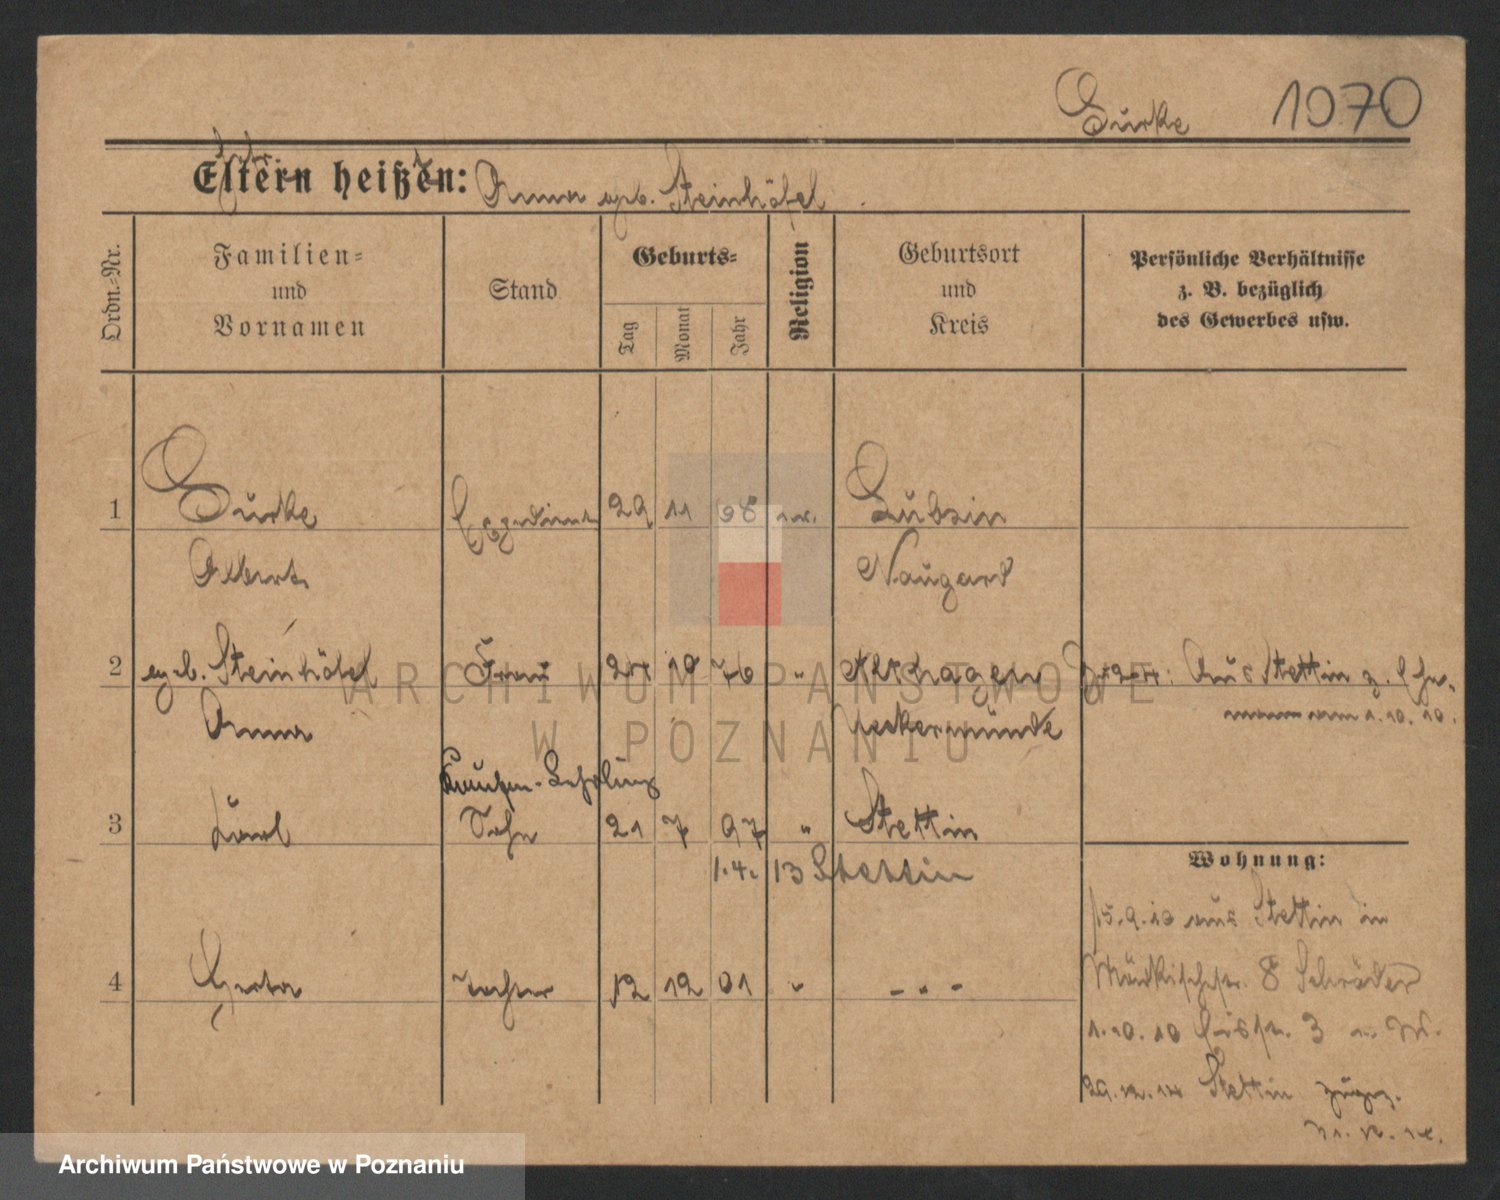 Gurke 1070
Eltern heißen: Anna geb. Steinhöfel
Ordn.-Nr.
Familien-
und
Vornamen
Stand
Geburts-
Tag
Monat
Jahr
Religion
Geburtsort
und
Kreis
Persönliche Verhältnisse
z. B. bezüglich
des Gewerbes usw.
1 Gurke Expedient 29 11 68 ev. Lübzin
Albert Naugard
2 geb. Steinhöfel Frau 10 76 " Althagen Aus Stettin z. Ehe-
Anna Ueckermünde mann 1.10.10.
Kaufm.-Lehrling
3 Karl Sohn 21 7 97 " Stettin
1.4.13 Stettin
Wohnung:
15.9.10 aus Stettin in
4 Herta Tochter 12 12 01 " - " -
Märkischestr. 8 Schröder
1.10.10 3
29.12.14 Stettin
ARCHIWUM PAŃSTWOWE
W POZNANIU
Archiwum Państwowe w Poznaniu